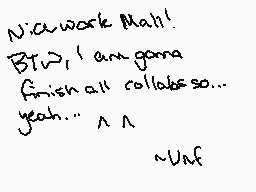 Nice work Matt!
BTW, I am gonna
finish all collabs so...
yeah... ^ ^
~UNf